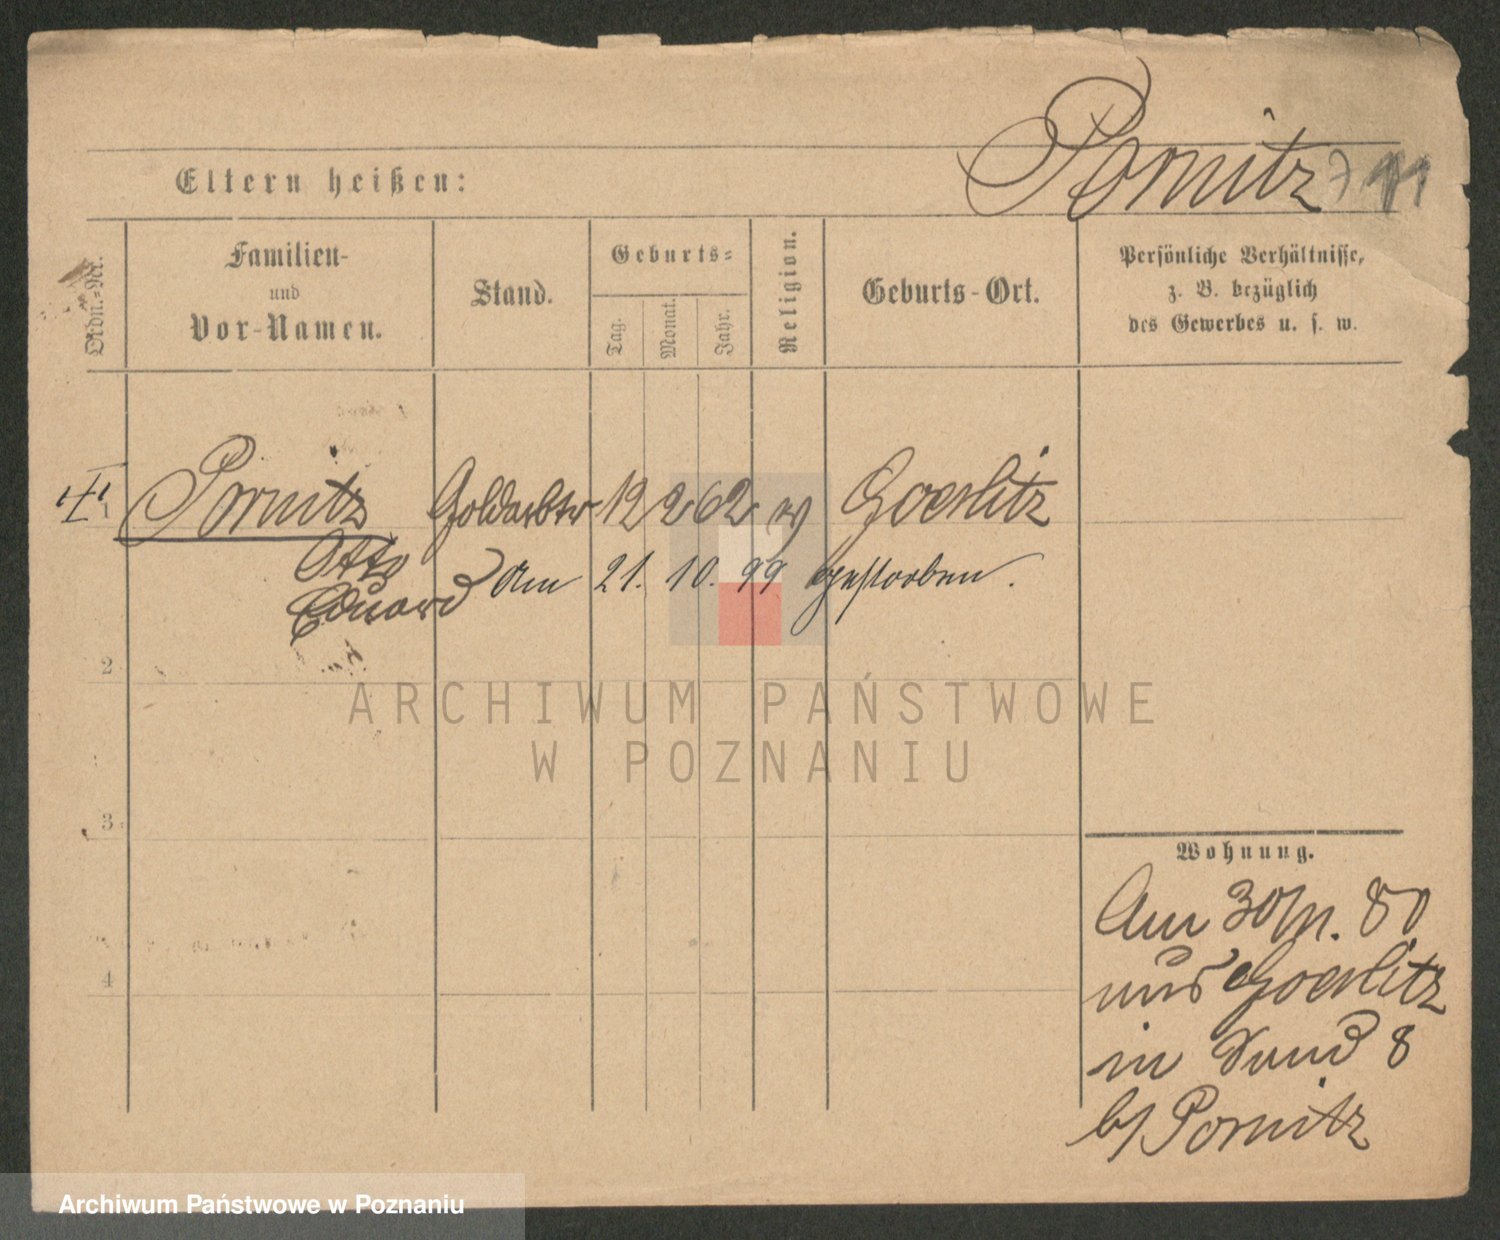 Pornitz
Eltern heißen:
Ordn.-Nr.
Familien-
und
Vor-Namen.
Stand.
Geburts-
Tag.
Monat.
Jahr.
Religion.
Geburts-Ort.
Persönliche Verhältnisse,
z. B. bezüglich
des Gewerbes u. s. w.
1 Pornitz Goldarbtr 12 2 62 Goerlitz
Otto
Eduard am 21. 10. 99 gestorben.
2
3
4
Wohnung.
Am 30/11. 80
aus Goerlitz
in Sand 8
b/ Pornitz
ARCHIWUM PAŃSTWOWE
W POZNANIU
Archiwum Państwowe w Poznaniu